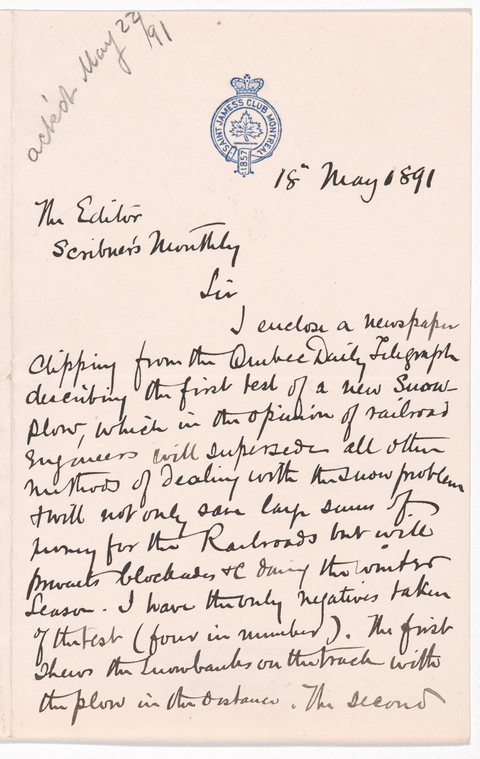 ack'd May 22/91
SAINT JAMES'S CLUB MONTREAL
1857
18th May 1891
The Editor
Scribner's Monthly
Sir
I enclose a newspaper
clipping from the Quebec Daily Telegraph
describing the first test of a new Snow
Plow, which in the opinion of railroad
Engineers will supersede all other
methods of dealing with the snow problem
& will not only save large sums of
money for the Railroads but will
prevent blockades &c during the winter
Season. I have the only negatives taken
of the test (four in number). The first
shews the snowbanks on the track with
the plow in the distance. The second